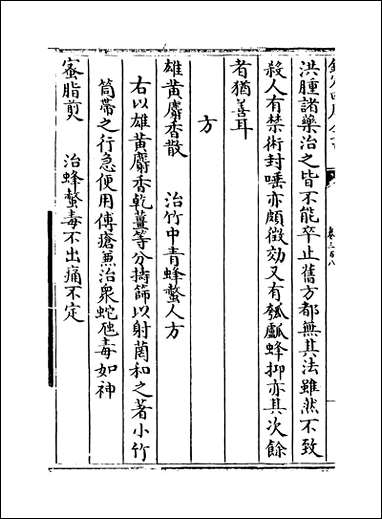 洪腫諸藥治之皆不能卒止舊方都無其法雖然不致
殺人有禁術封唾亦頗徴効又有瓠甗蜂抑亦其次餘
者猶善耳
方
雄黄麝香散 治竹中青蜂螫人方
右以雄黄麝香乾薑等分擣篩以射罔和之著小竹
筒帶之行急便用傅瘡兼治衆蛇虺毒如神
蜜脂煎 治蜂螫毒不出痛不定